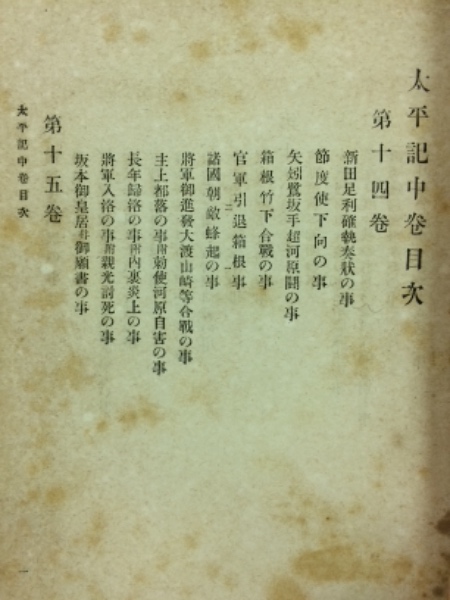 太平記中卷目次
第十四卷
新田足利確執奏狀の事
節度使下向の事
矢矧鷺坂手超河原鬪の事
箱根竹下合戰の事
官軍引退箱根事
諸國朝敵蜂起の事
將軍御進發大渡山崎等合戰の事
主上都落の事附勅使河原自害の事
長年歸洛の事附內裏炎上の事
將軍入洛の事附親光討死の事
坂本御皇居幷御願書の事
第十五卷
太平記中卷目次
一